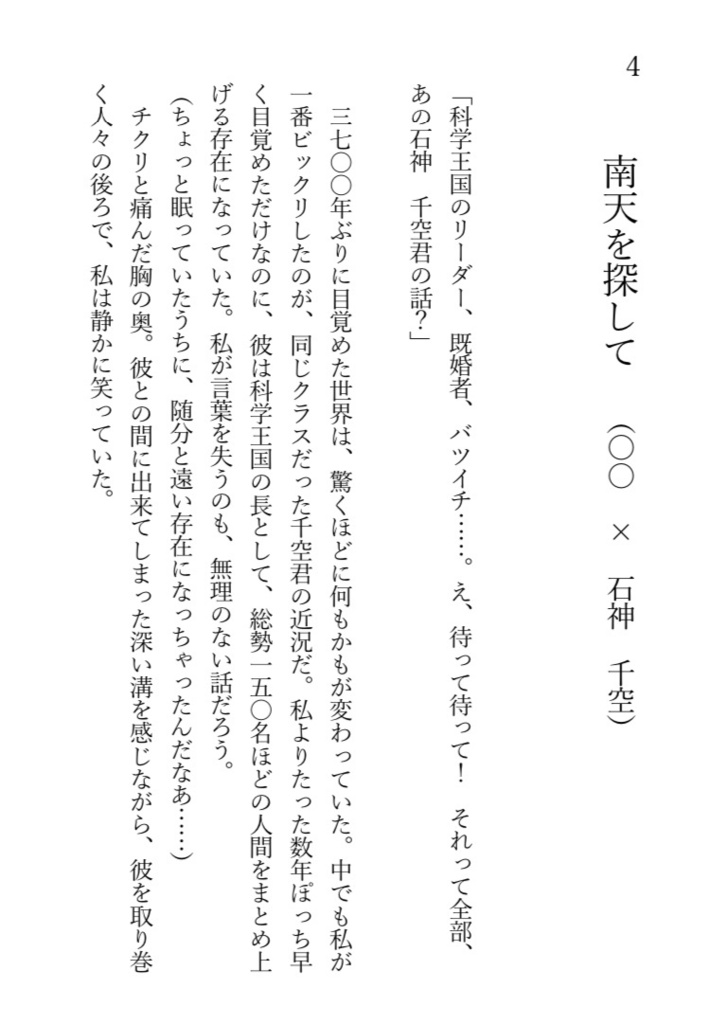 4
南天を探して　（〇〇　×　石神　千空）
「科学王国のリーダー、既婚者、バツイチ……。え、待って待って！　それって全部、
あの石神　千空君の話？」
三七〇〇年ぶりに目覚めた世界は、驚くほどに何もかもが変わっていた。中でも私が
一番ビックリしたのが、同じクラスだった千空君の近況だ。私よりたった数年ぽっち早
く目覚めただけなのに、彼は科学王国の長として、総勢一五〇名ほどの人間をまとめ上
げる存在になっていた。私が言葉を失うのも、無理のない話だろう。
（ちょっと眠っていたうちに、随分と遠い存在になっちゃったんだなあ……）
チクリと痛んだ胸の奥。彼との間に出来てしまった深い溝を感じながら、彼を取り巻
く人々の後ろで、私は静かに笑っていた。